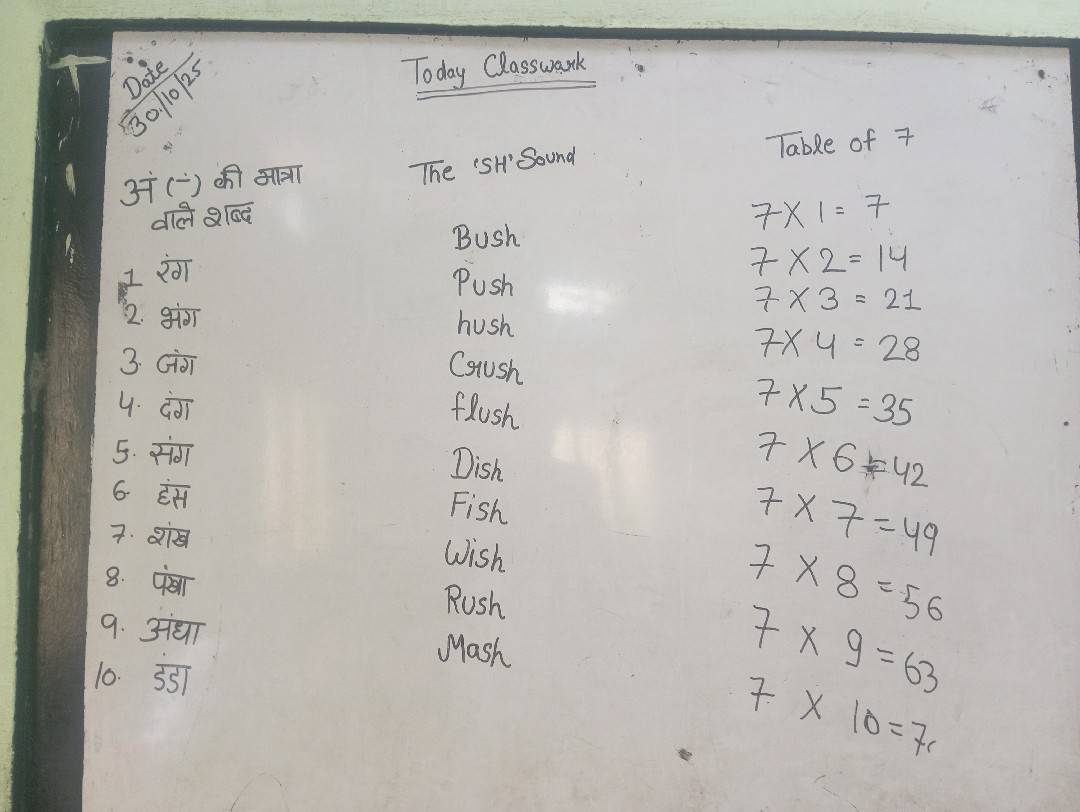 Date
30/10/25
Today Classwork
अं (-ं) की मात्रा
वाले शब्द
1 रंग
2. भंग
3. जंग
4. दंग
5. संग
6 हंस
7. शंख
8. पंखा
9. अंधा
10. डंडा
The 'SH' Sound
Bush
Push
hush
Crush
flush
Dish
Fish
Wish
Rush
Mash
Table of 7
7 X 1 = 7
7 X 2 = 14
7 X 3 = 21
7 X 4 = 28
7 X 5 = 35
7 X 6 = 42
7 X 7 = 49
7 X 8 = 56
7 X 9 = 63
7 X 10 = 70